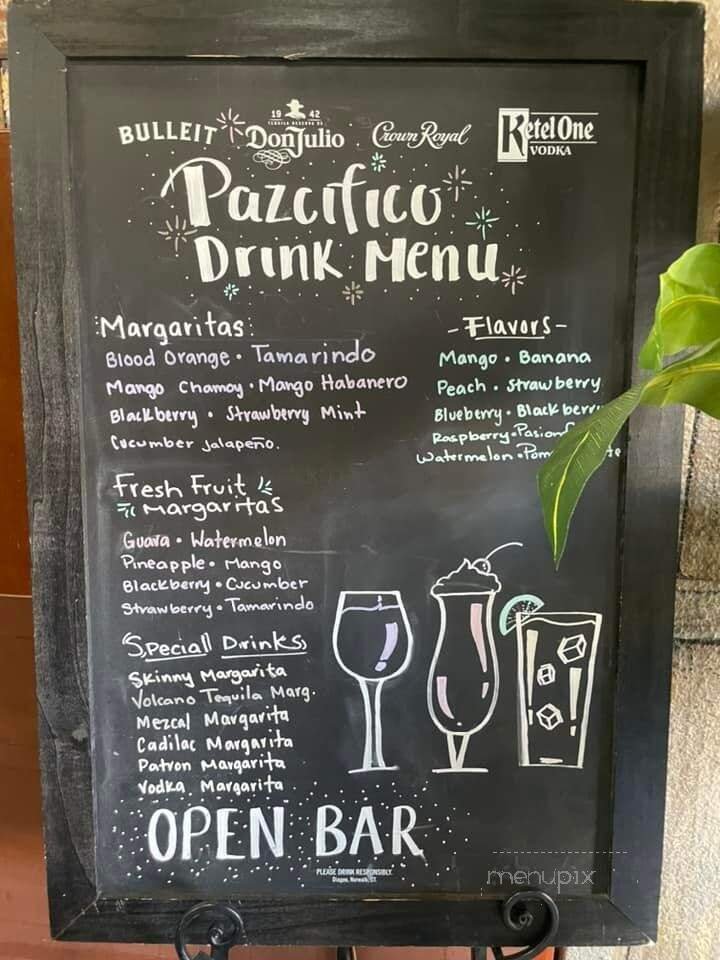 BULLEIT
19 42
TEQUILA RESERVA DE
Don Julio
Crown Royal
Ketel One
VODKA
Pazcifico
Drink Menu
Margaritas:
Blood Orange • Tamarindo
Mango Chamoy • Mango Habanero
Blackberry • Strawberry Mint
Cucumber jalapeño.
- Flavors -
Mango • Banana
Peach • Strawberry
Blueberry • Blackberry
Raspberry •
Watermelon •
Fresh Fruit
Margaritas
Guava • Watermelon
Pineapple • Mango
Blackberry • Cucumber
Strawberry • Tamarindo
Speciall Drinks
Skinny Margarita
Volcano Tequila Marg.
Mezcal Margarita
Cadilac Margarita
Patron Margarita
Vodka Margarita
OPEN BAR
PLEASE DRINK RESPONSIBLY.
Diageo, Norwalk, CT.
menupix